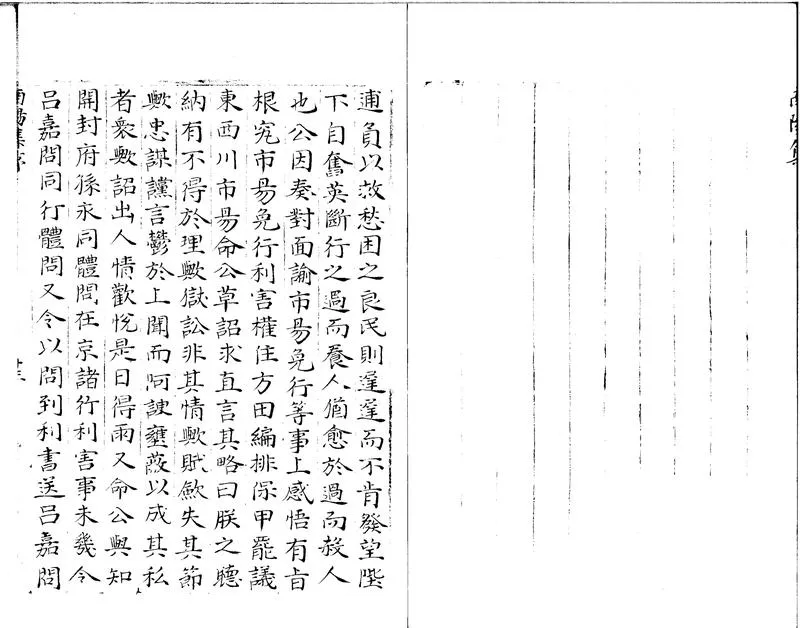 逋負以救愁困之良民則遲遲而不肯發望陛
下自奮英斷行之過而養人猶愈於過而殺人
也公因奏對面諭市易免行等事上感悟有旨
根究市易免行利害權住方田編排保甲罷議
東西川市易命公草詔求直言其略曰朕之聽
納有不得於理歟獄訟非其情歟賦歛失其節
歟忠謀讜言鬱於上聞而阿諛壅蔽以成其私
者衆歟詔出人情歡悅是日得雨又命公與知
開封府孫永同體問在京諸行利害事未幾令
呂嘉問同行體問又令以問到利害送呂嘉問
南陽集序
廿三